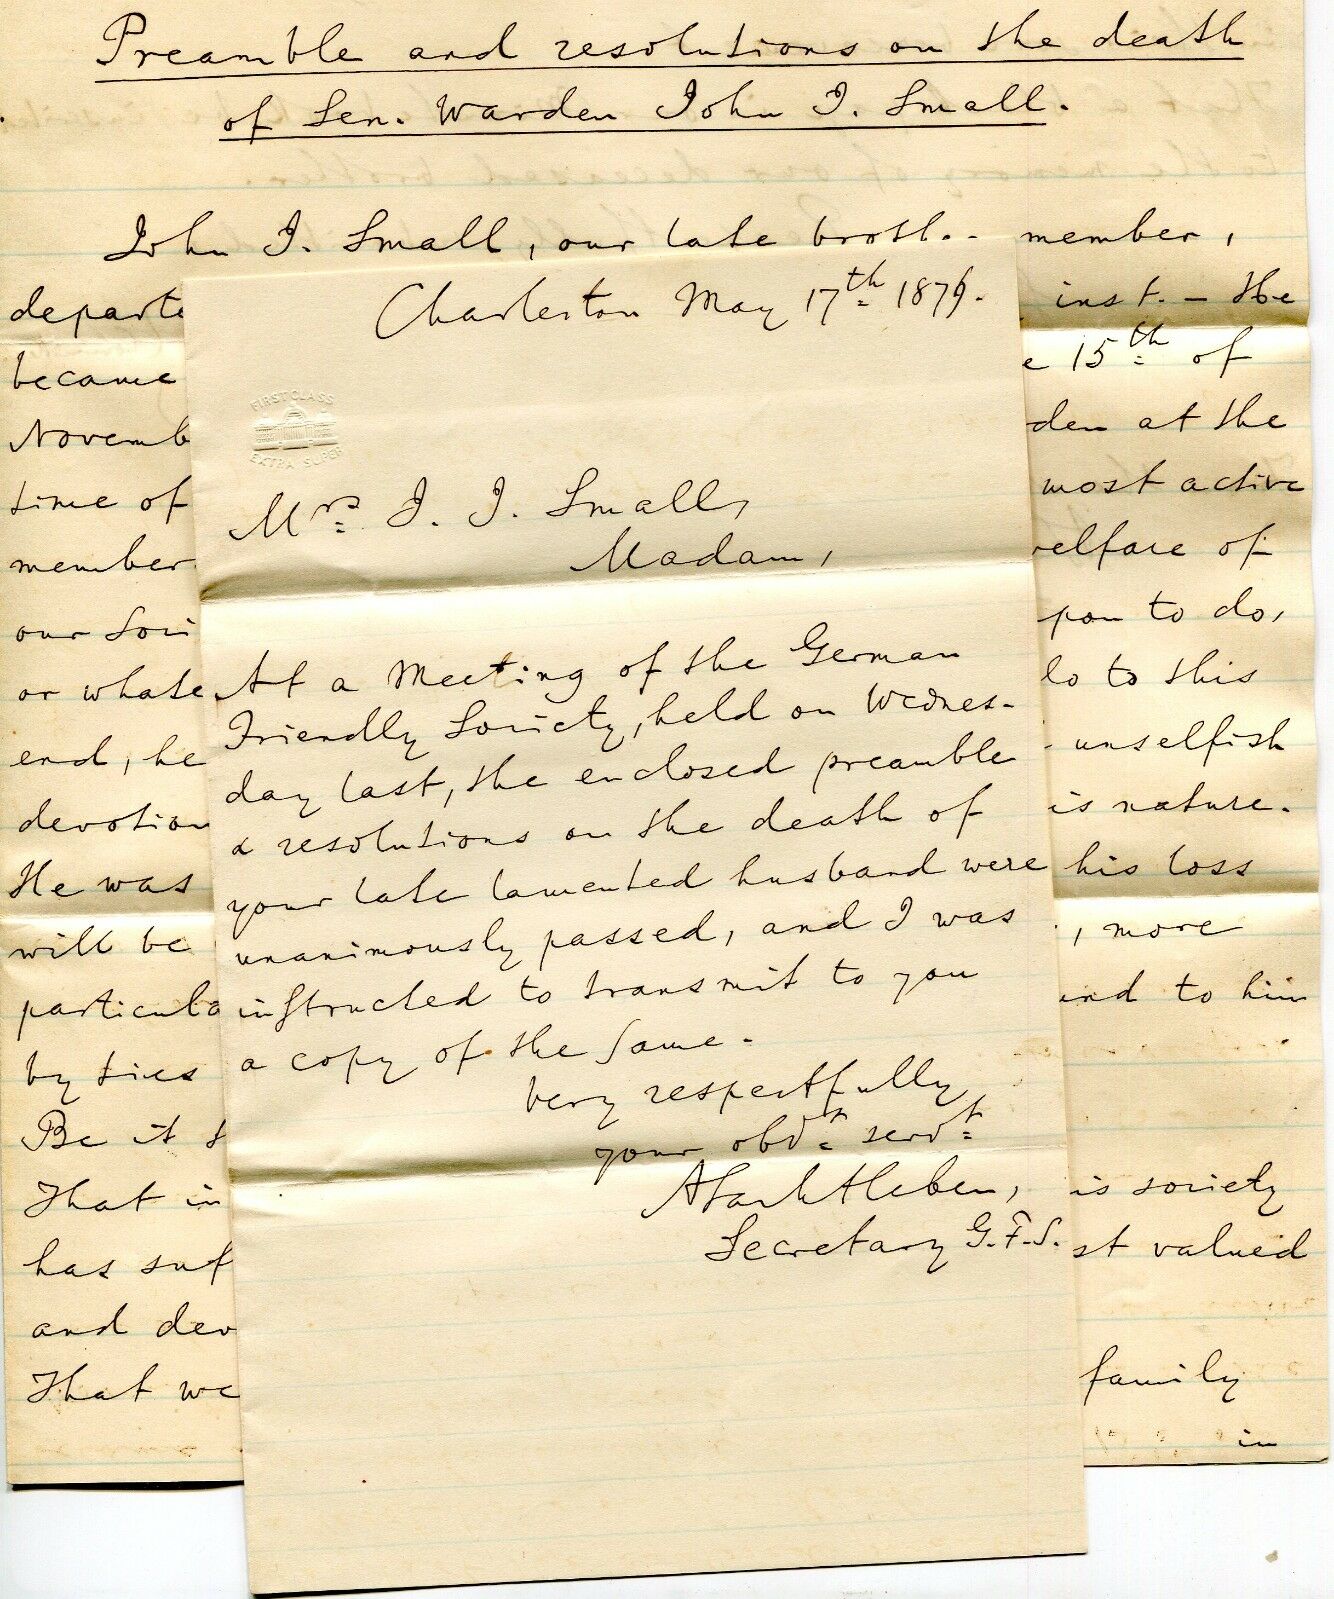 Preamble and resolutions on the death
of Sen. Warden John J. Small.
John J. Small, our late broth.- member,
departe inst. - He
became e 15th of
Novemb den at the
time of most active
member elfare of
our Soci pon to do,
or whate lo to this
end, he unselfish
devotion is nature.
He was his loss
will be , more
particula und to him
by ties
Be it
That in is society
has suf st valued
and dev
That we family
in
Charleston May 17th 1879.
FIRST CLASS
EXTRA SUPER
Mrs J. J. Small,
Madam,
At a Meeting of the German
Friendly Society, held on Wednes-
day last, the enclosed preamble
& resolutions on the death of
your late lamented husband were
unanimously passed, and I was
instructed to transmit to you
a copy of the same.
Very respectfully
your obdt servt
Secretary G.F.S.